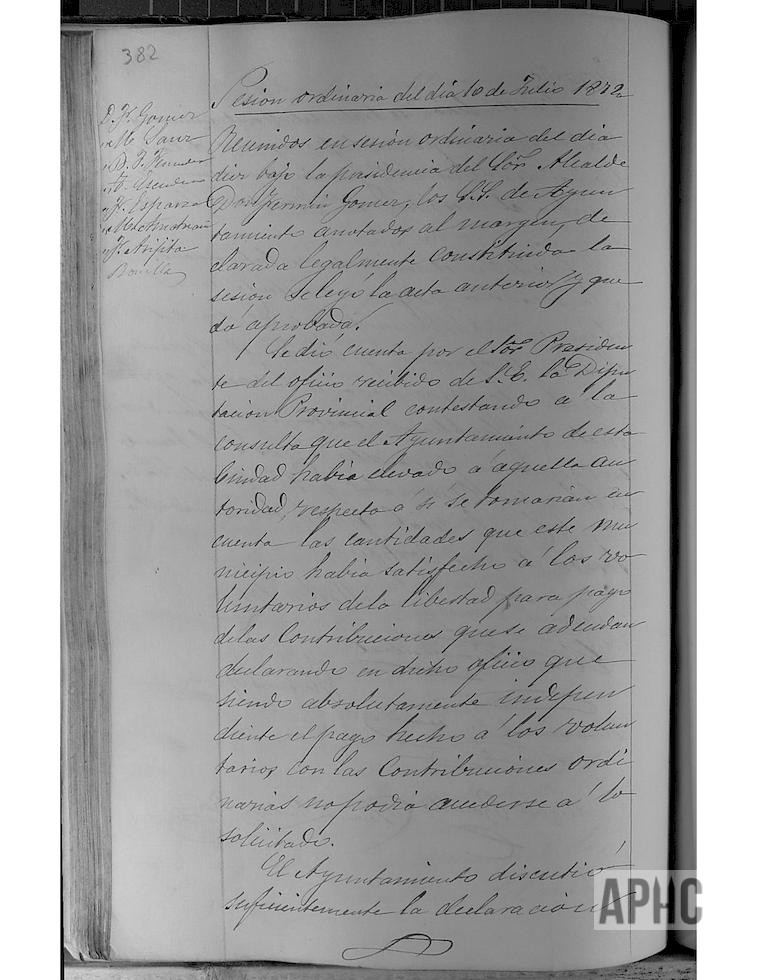 382
Sesion ordinaria del dia 10 de Julio 1872
D. F. Gomez
" M. Sanz
" D. F.
" F. Escudero
" F. Esparza
" M.
" F. Azpita
Bonilla
Reunidos en sesion ordinaria del dia
diez bajo la presidencia del Sor. Alcalde
Don Fermin Gomez, los S.S. de Ayun
tamiento anotados al margen, de
clarada legalmente constituida la
sesion se leyo la acta anterior y que
dó aprobada.
Se dió cuenta por el Sor. Presiden
te del oficio recibido de S. E. la Dipu
tacion Provincial contestando á la
consulta que el Ayuntamiento de esta
Ciudad habia elevado á aquella au
toridad, respecto á si se tomarian en
cuenta las cantidades que este mu
nicipio habia satisfecho á los vo
luntarios de la libertad para pago
de las Contribuciones que se adeudan
declarando en dicho oficio que
siendo absolutamente indepen
diente el pago hecho á los volun
tarios con las Contribuciones ordi
narias no podia accederse á lo
solicitado.
El Ayuntamiento discutió
suficientemente la declaracion
APHC